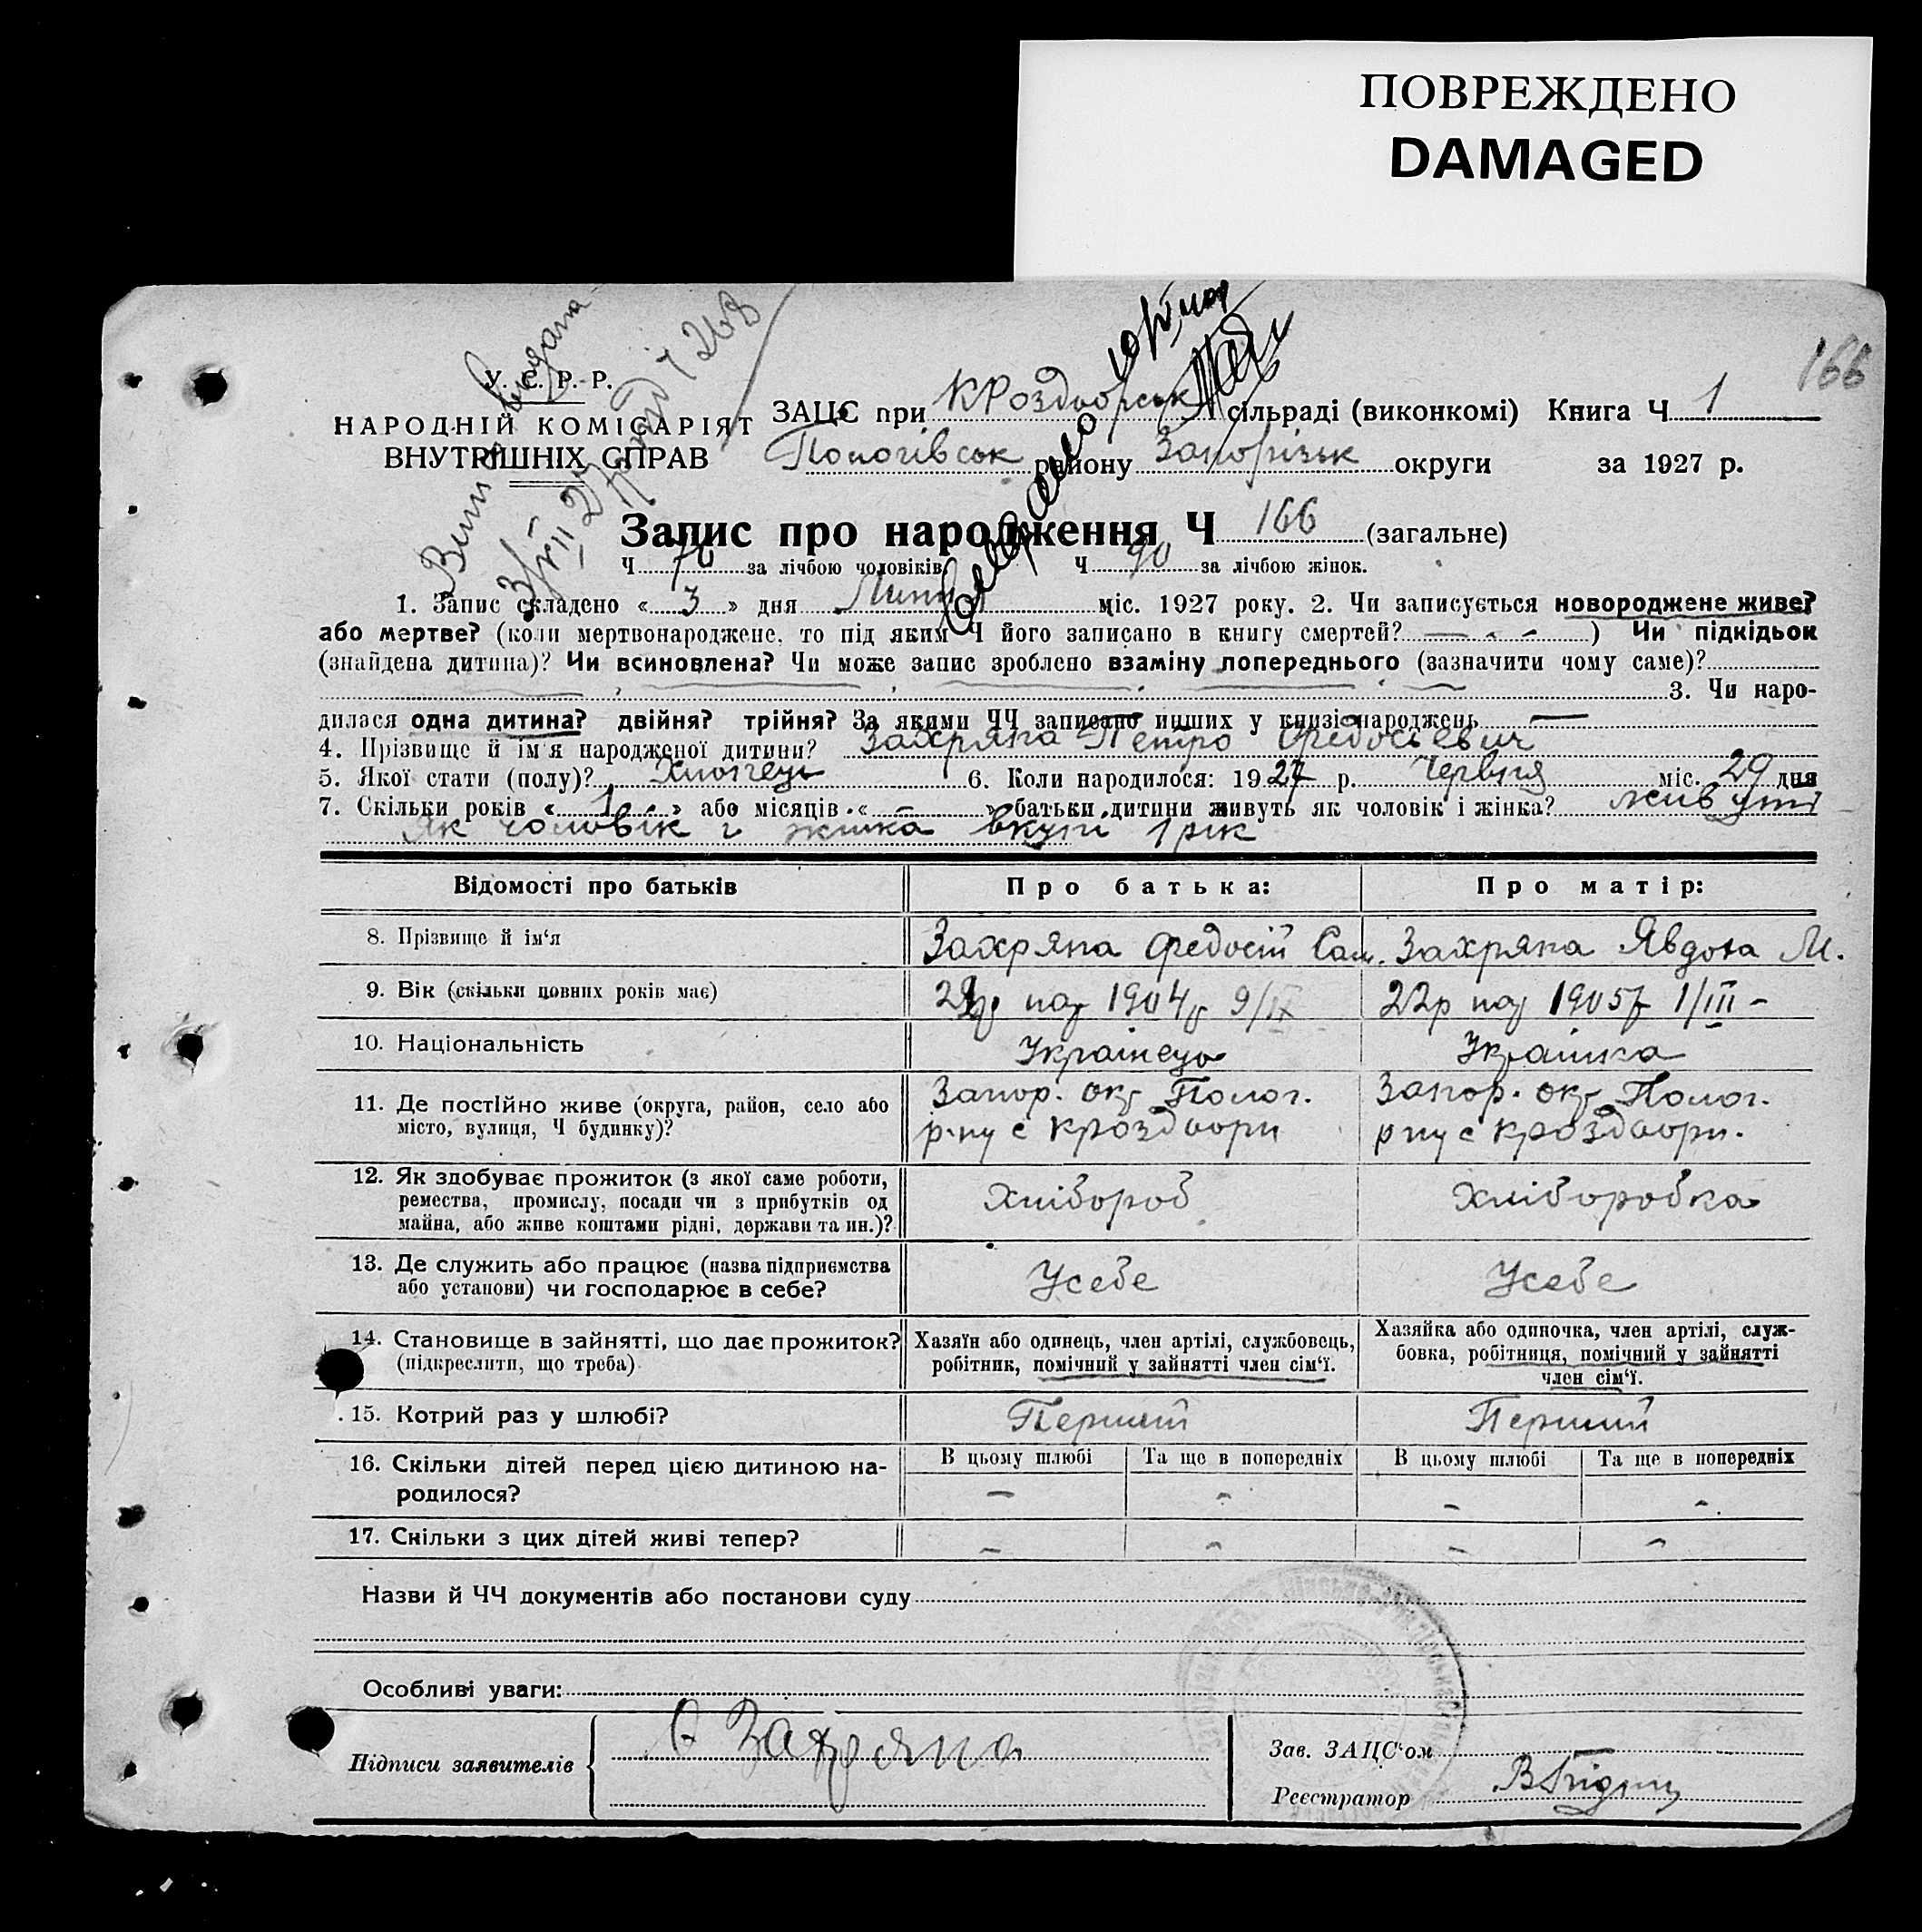 ПОВРЕЖДЕНО
DAMAGED
166
У. С. Р. Р.
НАРОДНІЙ КОМІСАРІЯТ
ВНУТРІШНІХ СПРАВ
ЗАЦС при КРоздорськ сільраді (виконкомі) Книга Ч 1
Пологівськ району Запорізьк округи за 1927 р.
Запис про народження Ч 166 (загальне)
Ч 76 за лічбою чоловіків. Ч 90 за лічбою жінок.
1. Запис складено « 3 » дня Липня міс. 1927 року. 2. Чи записується новороджене живе?
або мертве? (коли мертвонароджене, то під яким Ч його записано в книгу смертей? — - - ) Чи підкідьок
(знайдена дитина)? Чи всиновлена? Чи може запис зроблено взаміну попереднього (зазначити чому саме)?
3. Чи наро-
дилася одна дитина? двійня? трійня? За якими ЧЧ записано инших у книзі народжень —
4. Прізвище й ім'я народженої дитини? Захряпа Петро Федосієвич
5. Якої стати (полу)? Хлопець 6. Коли народилося: 1927 р. Червня міс. 29 дня
7. Скільки років « 1 » або місяців « — » батьки дитини живуть як чоловік і жінка? живуть
Як чоловік і жінка вкупі 1 рік
Відомості про батьків Про батька: Про матір:
8. Прізвище й ім'я Захряпа Федосій Сам. Захряпа Явдоха М.
9. Вік (скільки повних років має) 1904 9/IX 22р 1905 1/III -
10. Національність Українець Українка
11. Де постійно живе (округа, район, село або Запор. окр Полог. Запор. окр Полог.
місто, вулиця, Ч будинку)? р-ну с Кроздори р-ну с Кроздори.
12. Як здобуває прожиток (з якої саме роботи,
ремества, промислу, посади чи з прибутків од Хлібороб Хліборобка
майна, або живе коштами рідні, держави та ин.)?
13. Де служить або працює (назва підприємства
або установи) чи господарює в себе? Усебе Усебе
14. Становище в зайнятті, що дає прожиток? Хазяїн або одинець, член артілі, службовець, Хазяйка або одиночка, член артілі, служ-
(підкреслити, що треба) робітник, помічний у зайнятті член сім'ї. бовка, робітниця, помічний у зайнятті
член сім'ї.
15. Котрий раз у шлюбі? Перший Перший
16. Скільки дітей перед цією дитиною на- В цьому шлюбі Та ще в попередніх В цьому шлюбі Та ще в попередніх
родилося? — — — —
17. Скільки з цих дітей живі тепер? — — — —
Назви й ЧЧ документів або постанови суду
Особливі уваги:
Підписи заявителів Захряпа
Зав. ЗАЦС'ом
Реєстратор